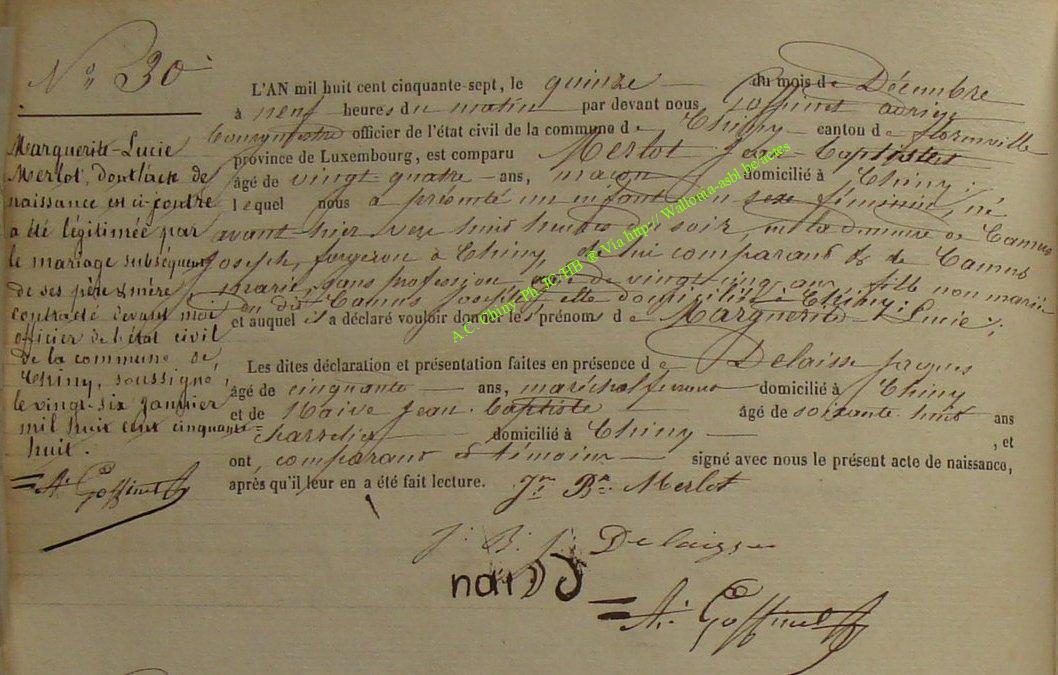 N° 30
L'AN mil huit cent cinquante-sept, le quinze du mois de Décembre
à neuf heures du matin par devant nous Goffinet adrien
bourgmestre officier de l'état civil de la commune de Chiny canton de florenville
province de Luxembourg, est comparu Merlot Jean Baptiste
âgé de vingt-quatre ans, maçon domicilié à Chiny;
lequel nous a présenté un enfant du sexe féminin, né
avant hier vers huit heures du soir, en la demeure de Camus
Joseph, forgeron à Chiny, de lui comparant & de Camus
Marie, sans profession, agée de vingt cinq ans, fille non mariée
du dit Camus Joseph et elle domiciliée à Chiny;
et auquel il a déclaré vouloir donner les prénoms de Marguerite-Lucie;
Les dites déclaration et présentation faites en présence de Delaisse Jacques
âgé de cinquante ans, maréchal ferrant domicilié à Chiny
et de Naive Jean Baptiste âgé de soixante huit ans
domicilié à Chiny , et
ont, comparant et témoins signé avec nous le présent acte de naissance,
après qu'il leur en a été fait lecture. Jn Bte Merlot
J. B. J. Delaisse
A. Goffinet
Marguerite-Lucie
Merlot, dont l'acte de
naissance est ci-contre
a été légitimée par
le mariage subséquent
de ses père & mère
contracté devant moi
officier de l'état civil
de la commune de
Chiny, soussigné,
le vingt-six janvier
mil huit cent cinquante=
huit.
A. Goffinet
A.C. Chiny Ph JC HB @ Via http://Wallonia-asbl.be/actes